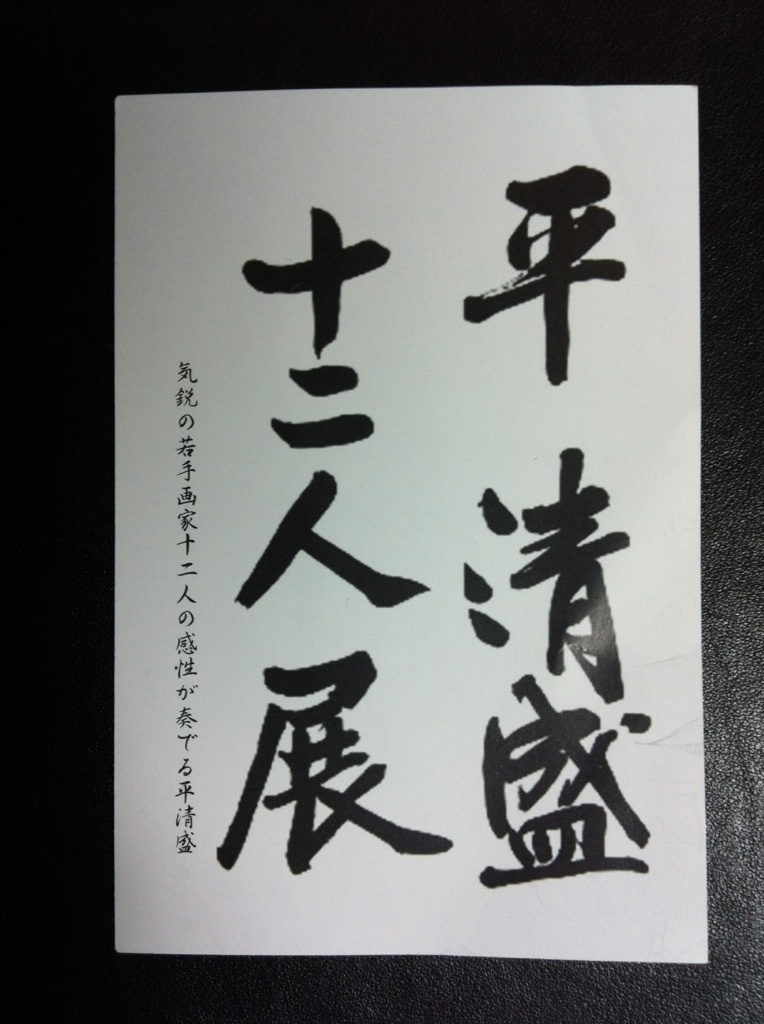 平清盛
十二人展
気鋭の若手画家十二人の感性が奏でる平清盛